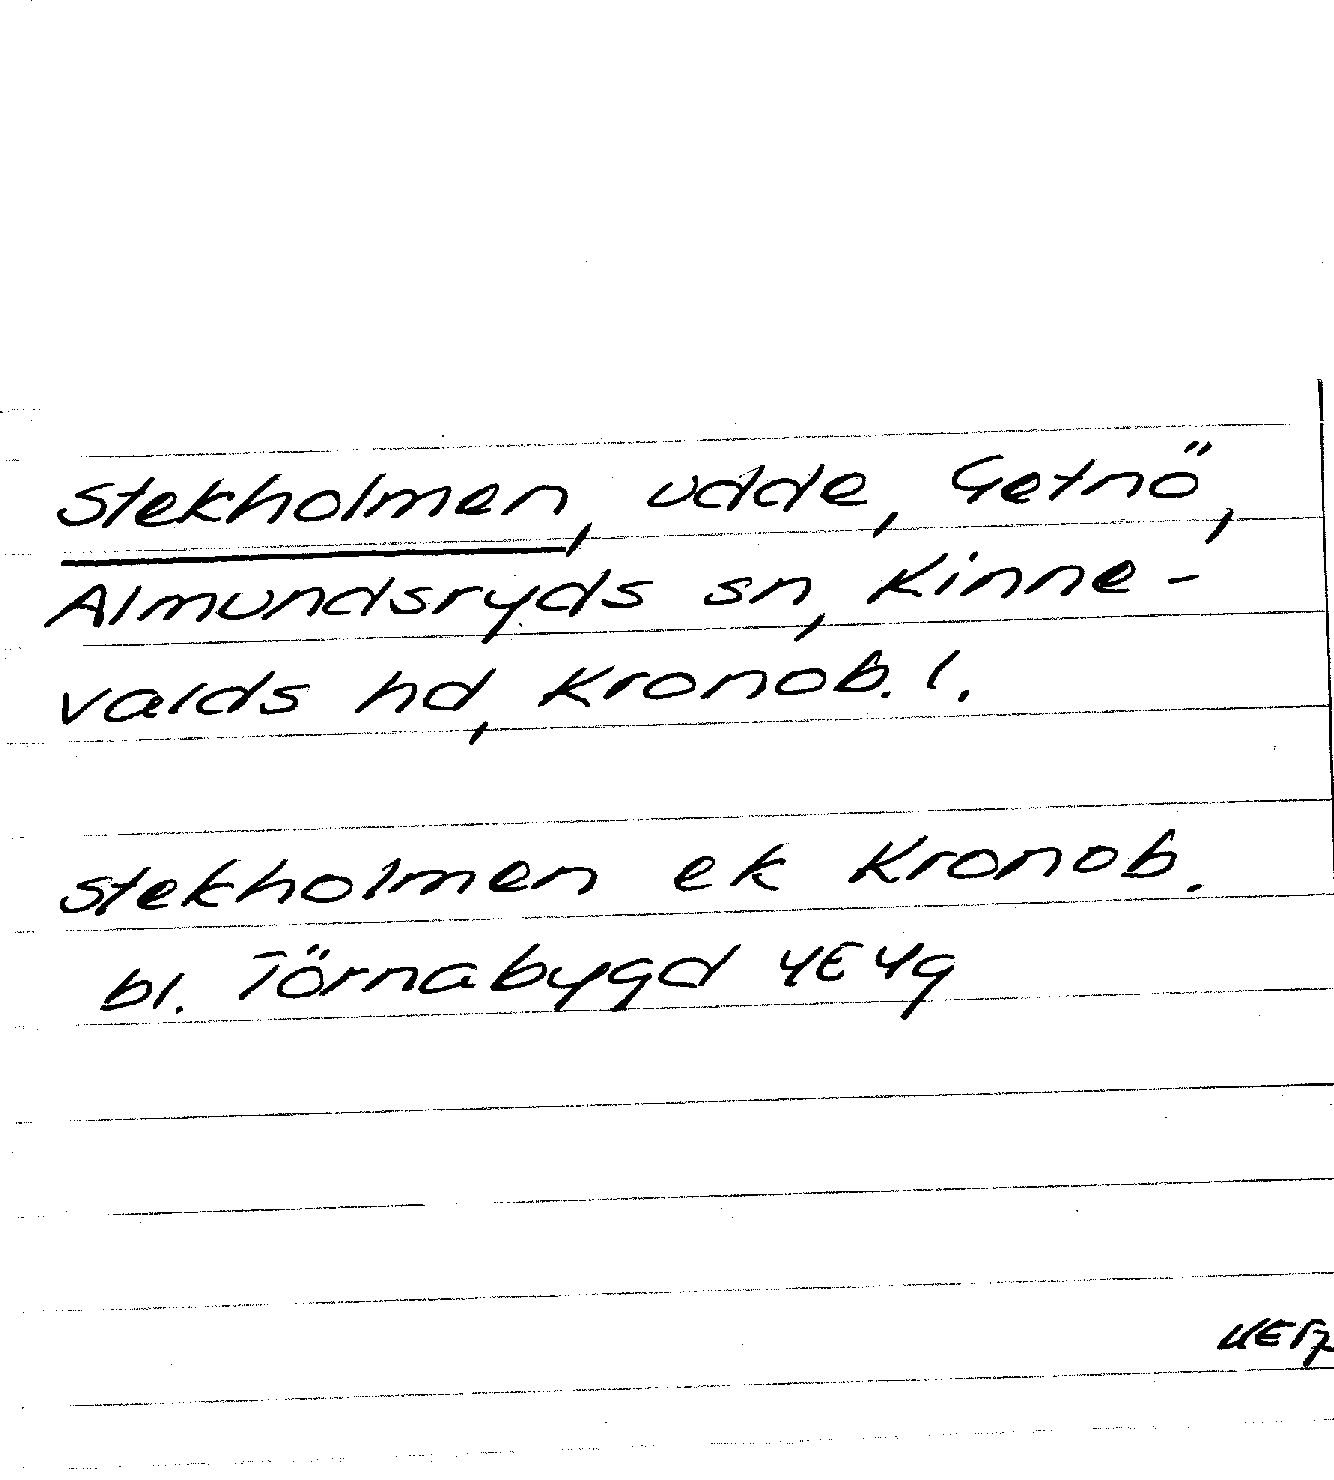 Stekholmen, udde, Getnö,
Almundsryds sn, Kinne-
valds hd, Kronob. l.
Stekholmen ek Kronob.
bl. Törnabygd 4E4g